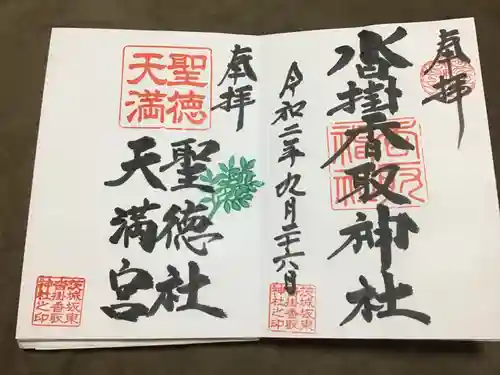 奉拝
沓掛香取神社
令和二年九月二十六日
茨城坂東
沓掛香取
神社之印
奉拝
聖徳社
天満宮
聖徳
天満
茨城坂東
沓掛香取
神社之印